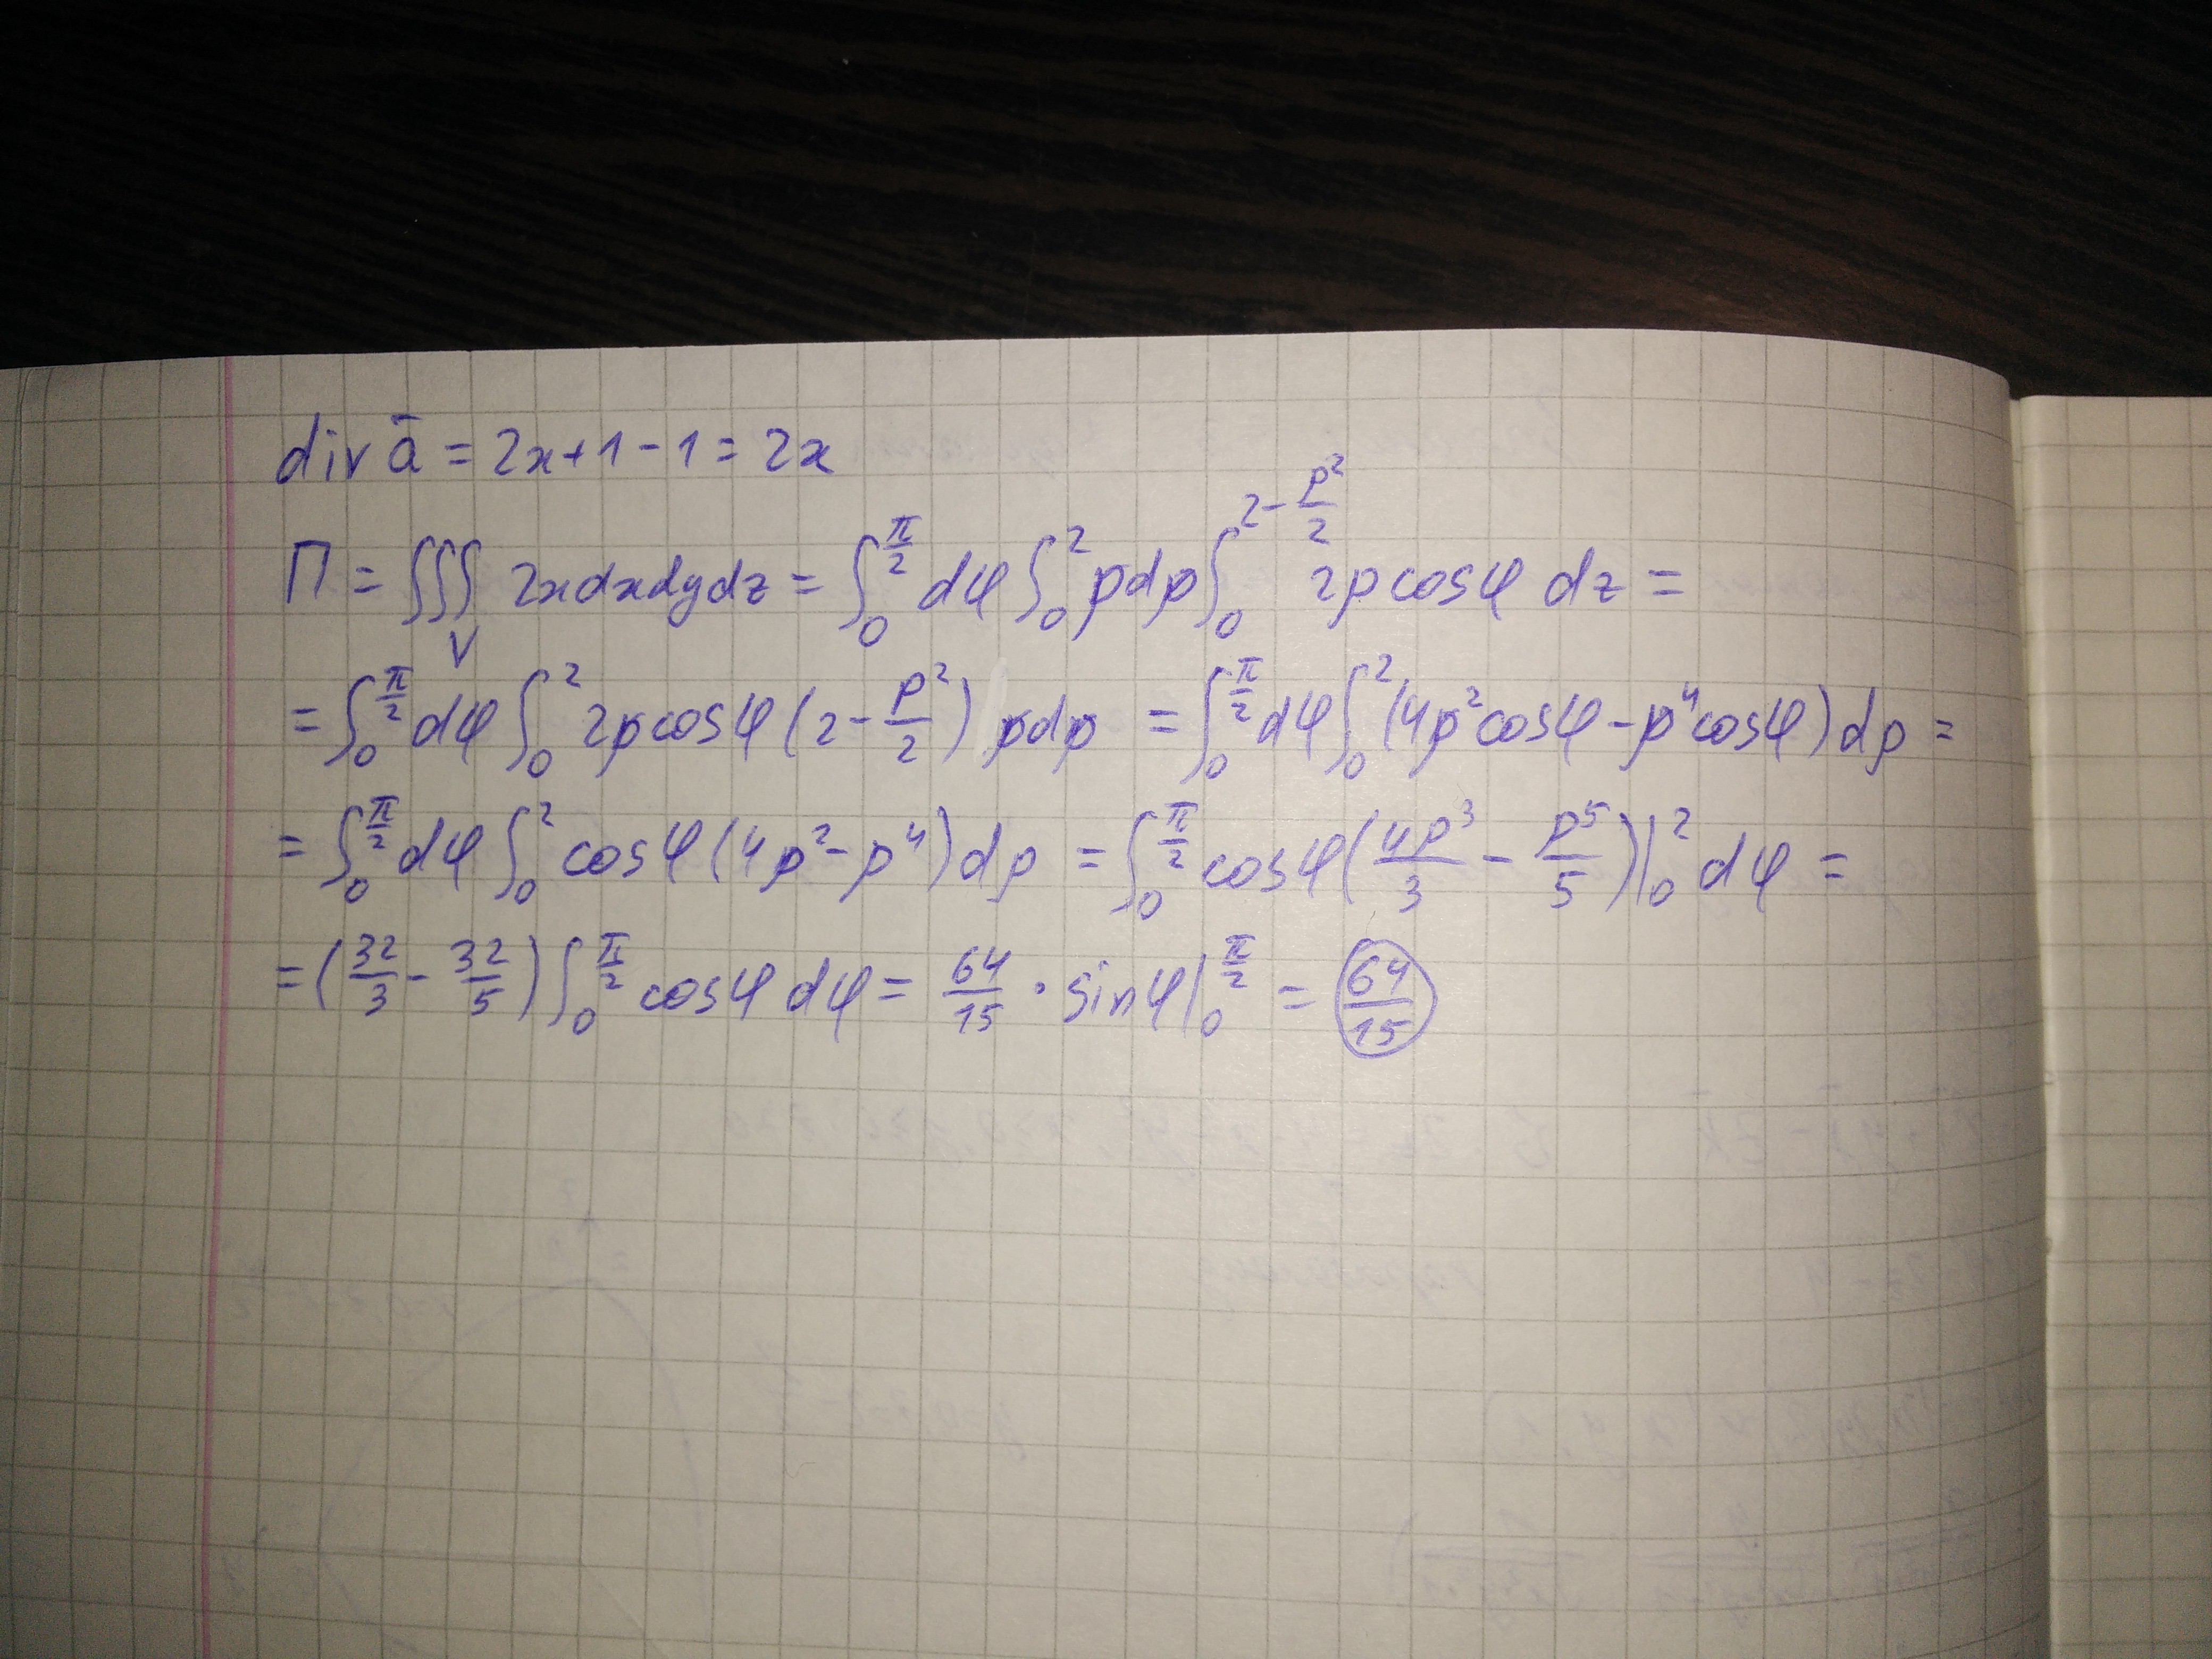 div ā = 2x+1-1 = 2x
П = ∭_V 2x dx dy dz = ∫_0^{π/2} dφ ∫_0^2 ρdρ ∫_0^{2-ρ²/2} 2ρ cosφ dz =
= ∫_0^{π/2} dφ ∫_0^2 2ρ cosφ (2 - ρ²/2) ρdρ = ∫_0^{π/2} dφ ∫_0^2 (4ρ² cosφ - ρ⁴ cosφ) dρ =
= ∫_0^{π/2} dφ ∫_0^2 cosφ (4ρ² - ρ⁴) dρ = ∫_0^{π/2} cosφ (4ρ³/3 - ρ⁵/5)|_0^2 dφ =
= (32/3 - 32/5) ∫_0^{π/2} cosφ dφ = 64/15 · sinφ|_0^{π/2} = 64/15